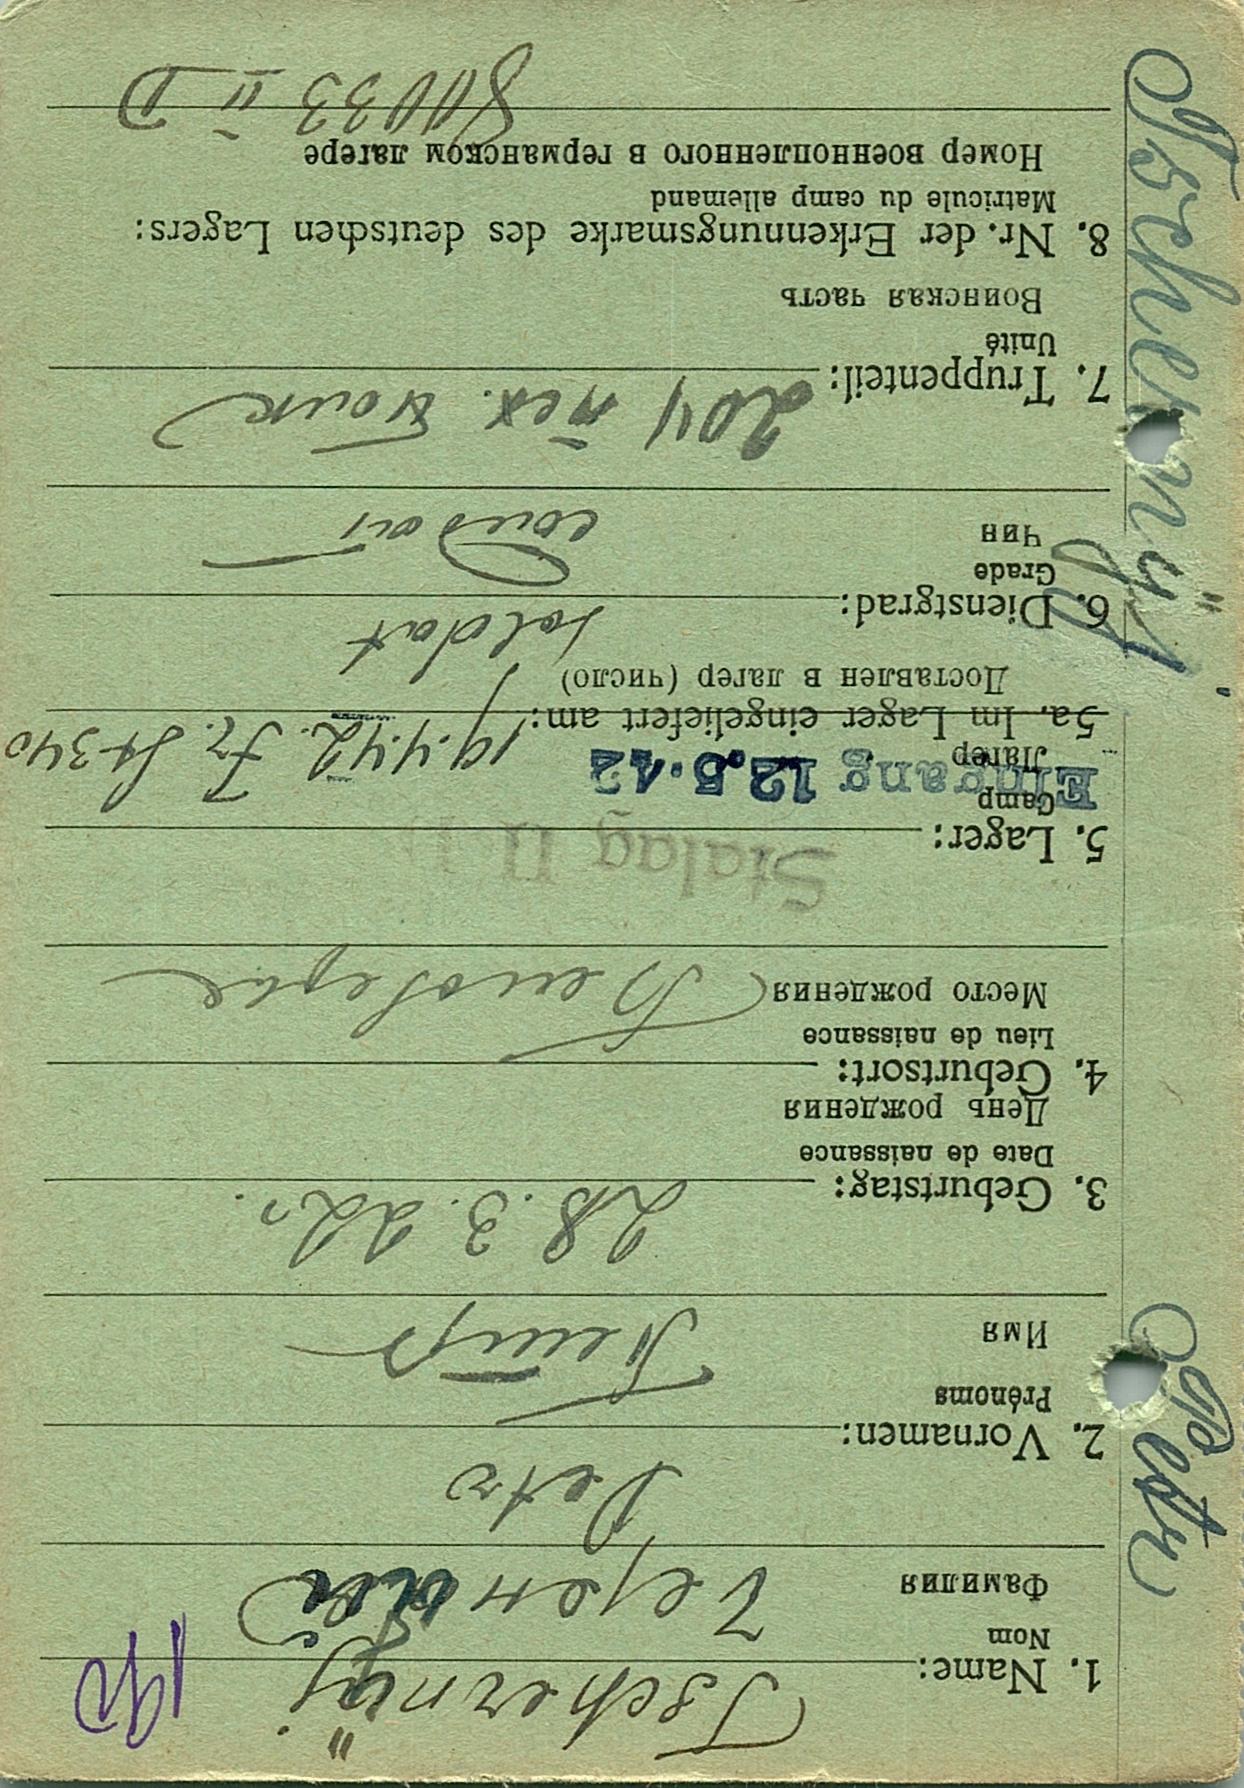 Tschernÿj
Petr
190
1. Name: Tschernÿj
Nom
Фамилия Черный
2. Vornamen: Petr
Prénoms
Имя Петр
3. Geburtstag: 28.3.22
Date de naissance
День рождения
4. Geburtsort:
Lieu de naissance
Место рождения
5. Lager: Stalag II D
Camp
Лагерь
Eingang 12.5.42
5a. Im Lager eingeliefert am: 19.4.42. Fz. St 340
Доставлен в лагер (число)
6. Dienstgrad: soldat
Grade
Чин солдат
7. Truppenteil: 204 пех. полк
Unité
Воинская часть
8. Nr. der Erkennungsmarke des deutschen Lagers:
Matricule du camp allemand
Номер военнопленного в германском лагере
II D